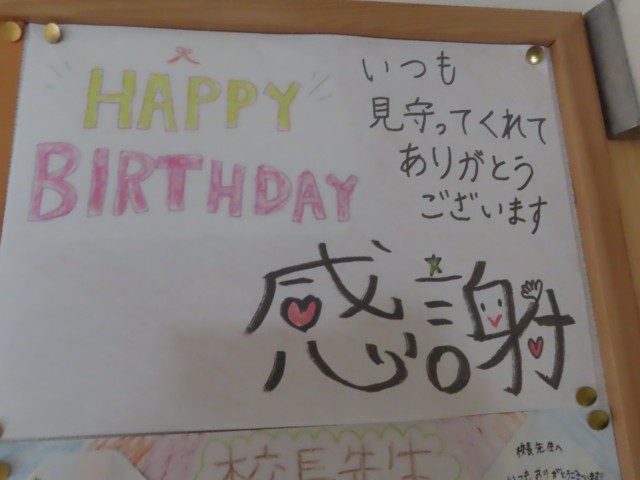 HAPPY
BIRTHDAY
いつも
見守ってくれて
ありがとう
ございます
感謝
校長先生
校長先生へ
いつもありがとうございます